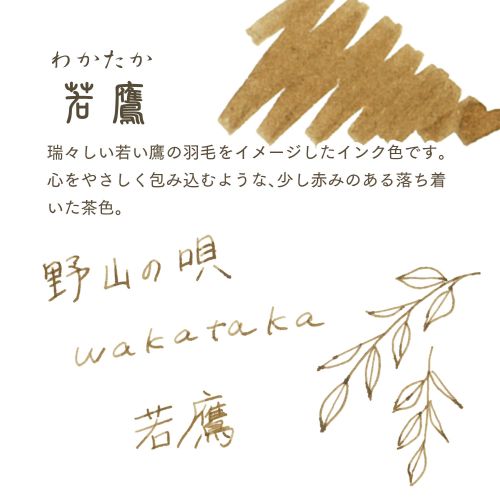 わかたか
若鷹
瑞々しい若い鷹の羽毛をイメージしたインク色です。
心をやさしく包み込むような、少し赤みのある落ち着
いた茶色。
野山の唄
wakataka
若鷹